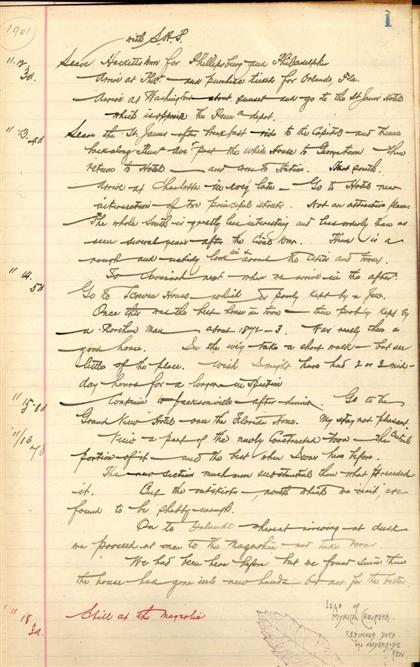 1
1901
with S.H.P.
11/12 Leave Hackettstown for Phillipsburg and Philadelphia
3d. Arrive at Phil. and purchase tickets for Orlando, Fla.
Arrive at Washington about sunset and go to the St James Hotel
which is opposite the Penn a depot.
" 13. 4d Leave the St. James after breakfast ride to the Capitol and thence
back along Penn Ave past the White House to Georgetown then
return to Hotel and to Station. Start south.
Arrive at Charlotte late Go to Hotel near
intersection of two principal streets. Not an attractive place.
The whole South is greatly less interesting and less orderly than as
seen several years after the Civil War. There is a
rough and untidy look in & around the cities and towns.
" 14. To Savannah next where we arrive in the after.
5d Go to Screven House which is poorly kept by a Jew.
Once this was the best house in town then probably kept by
a man about 1872-3. Was really then a
good house. In the city take a short walk but see
little of the place. Wish I might have had 2 or 3 mid-
day hours for a longer inspection
" 15. 6d Continue to Jacksonville after dinner. Go to the
Grand View Hotel over the Florida House. My stay not pleasant.
11/16 View a part of the newly constructed town the burnt
7d portion of it and the best when I was here before.
The new section much more substantial than what preceded
it. But the outskirts, north which we visit are
found to be shabby enough.
On to Orlando whereat arriving at dusk
we proceed at once to the Magnolia and take room
We had been here before but we found since then
the house has gone into new hands but not for the better.
" 18 Still at the Magnolia
3a.
LEAF OF
MYRICA CERIFERA
RESINOUS DOTS
ON UNDERSIDE
FEW.